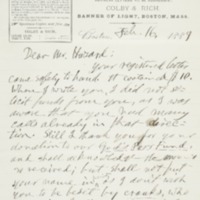 COLBY & RICH,
BANNER OF LIGHT, BOSTON, MASS.
Boston, Feb. 16, 1889
Dear Mr. Hazard:
Your registered letter
came safely to hand. It contained $10.
When I wrote you, I did not so-
licit funds from you, as I was
aware that you had many
calls already in that direc-
tion. Still I thank you for your
donation to our God's Poor Fund,
and shall acknowledge the amount
as received, but shall not put
your name in, as I don't wish
you to be beset by cranks, who